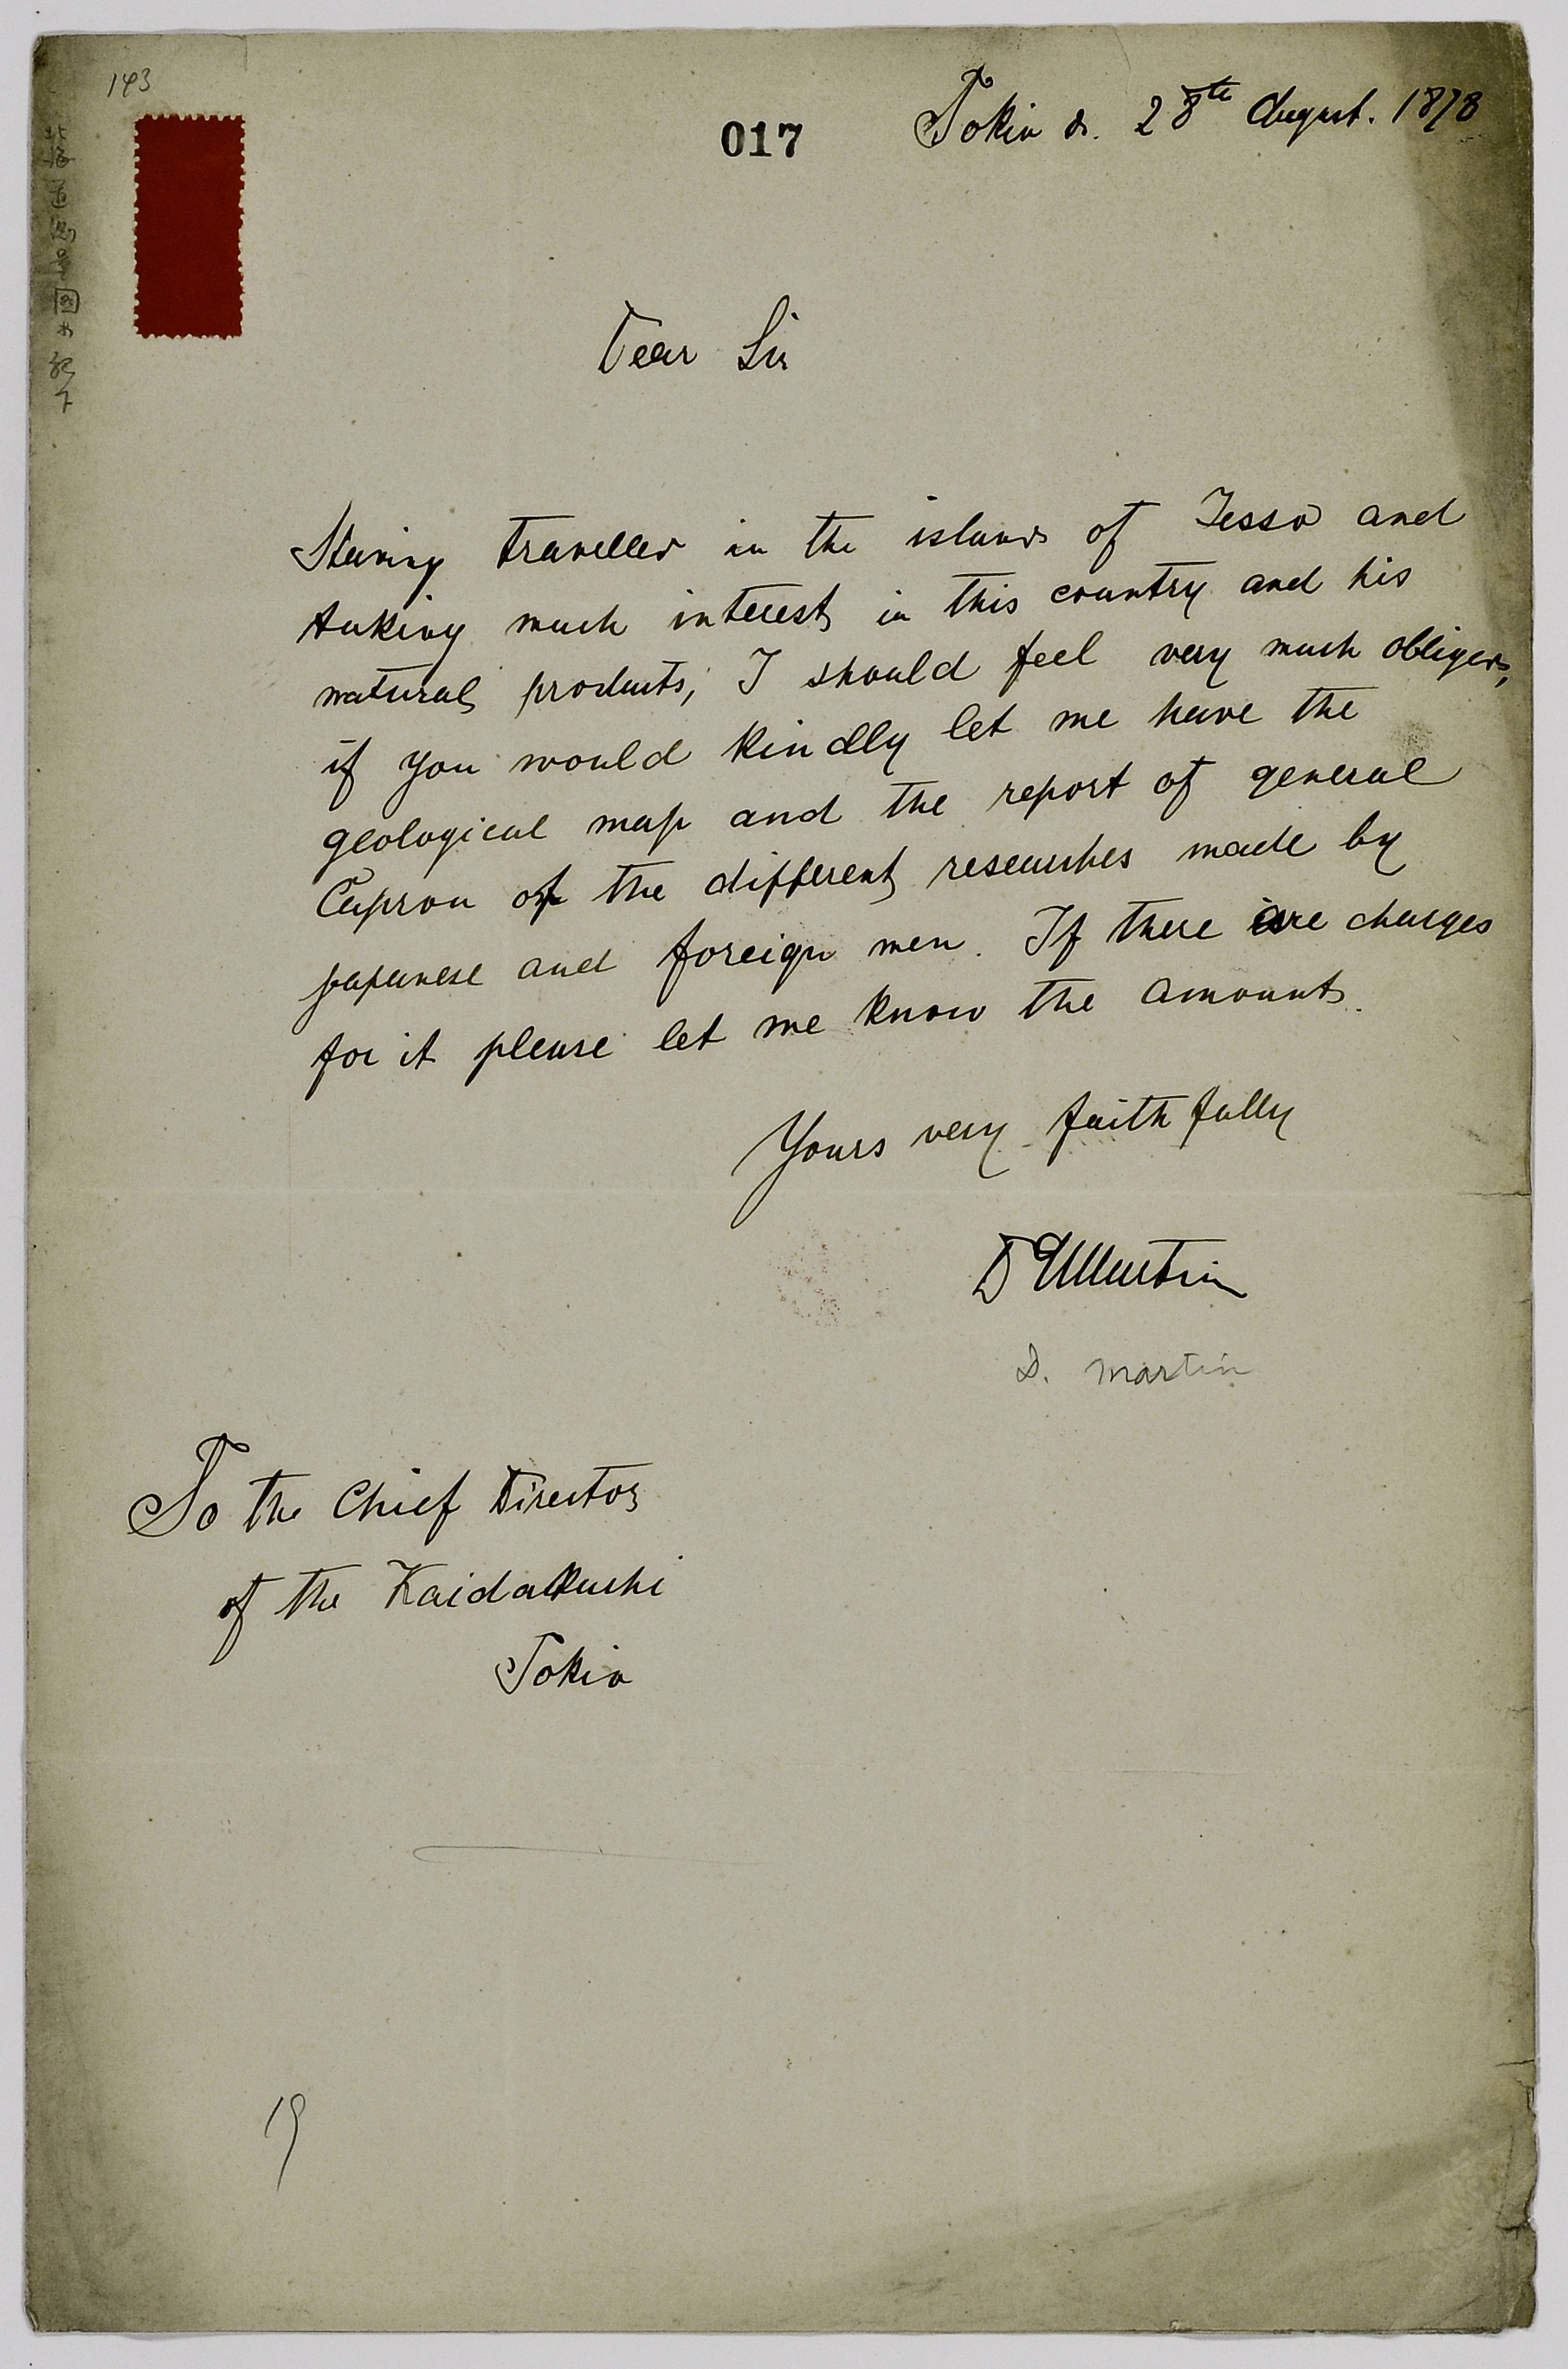 143
017
Tokio d. 28th August. 1878
Dear Sir
Having travelled in the island of Jesso and
taking much interest in this country and his
natural products, I should feel very much obliged,
if you would kindly let me have the
geological map and the report of general
Capron of the different researches made by
japanese and foreign men. If there are charges
for it please let me know the amount.
Yours very faithfully
D Martin
D. Martin
To the Chief Director
of the Kaidakushi
Tokio
19